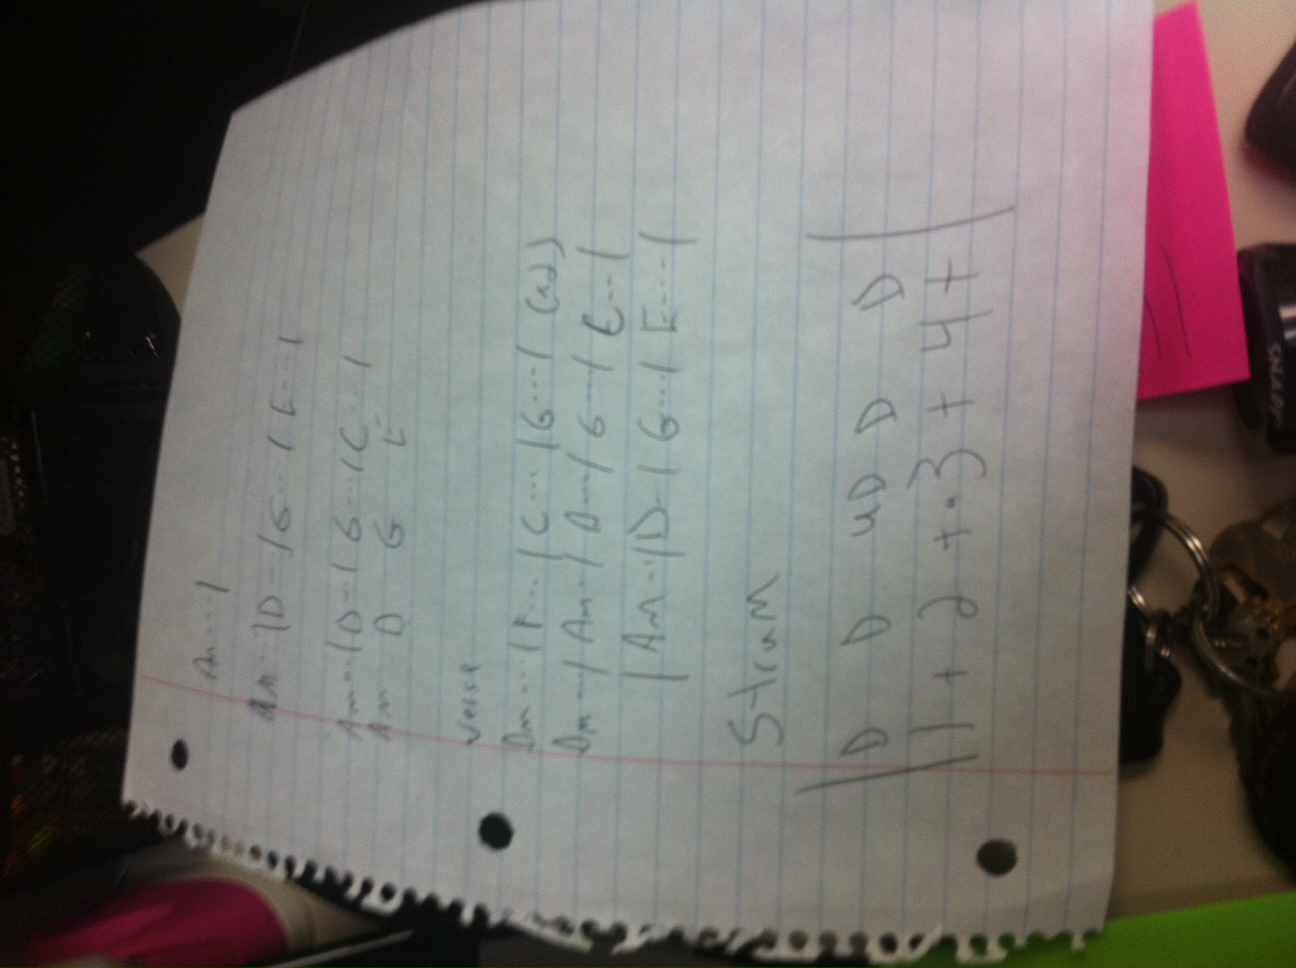 Am....|
Am..|D..|G...|E...|
Am..|D..|G...|C....|
Am D G E
Verse
Dm...|F....|C....|G....| (x2)
Dm...|Am..|D...|G....|E....|
|Am...|D..|G...|E....|
Strum
|D D uD D D |
|1 + 2 + . 3 + 4 + |
SNAP